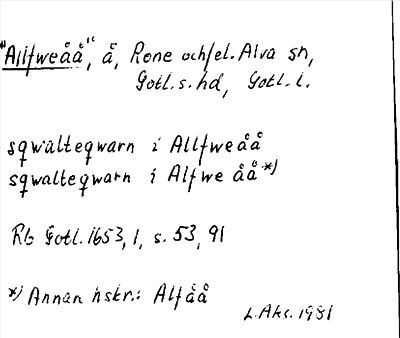 "Allfweåå", å, Rone och/el. Alva sn,
Gotl. s. hd, Gotl. l.
sqwalteqwarn i Allfweåå
sqwalteqwarn i Alfwe åå *)
Rb Gotl. 1653, 1, s. 53, 91
*) Annan hskr.: Alfåå
L. Aks. 1981